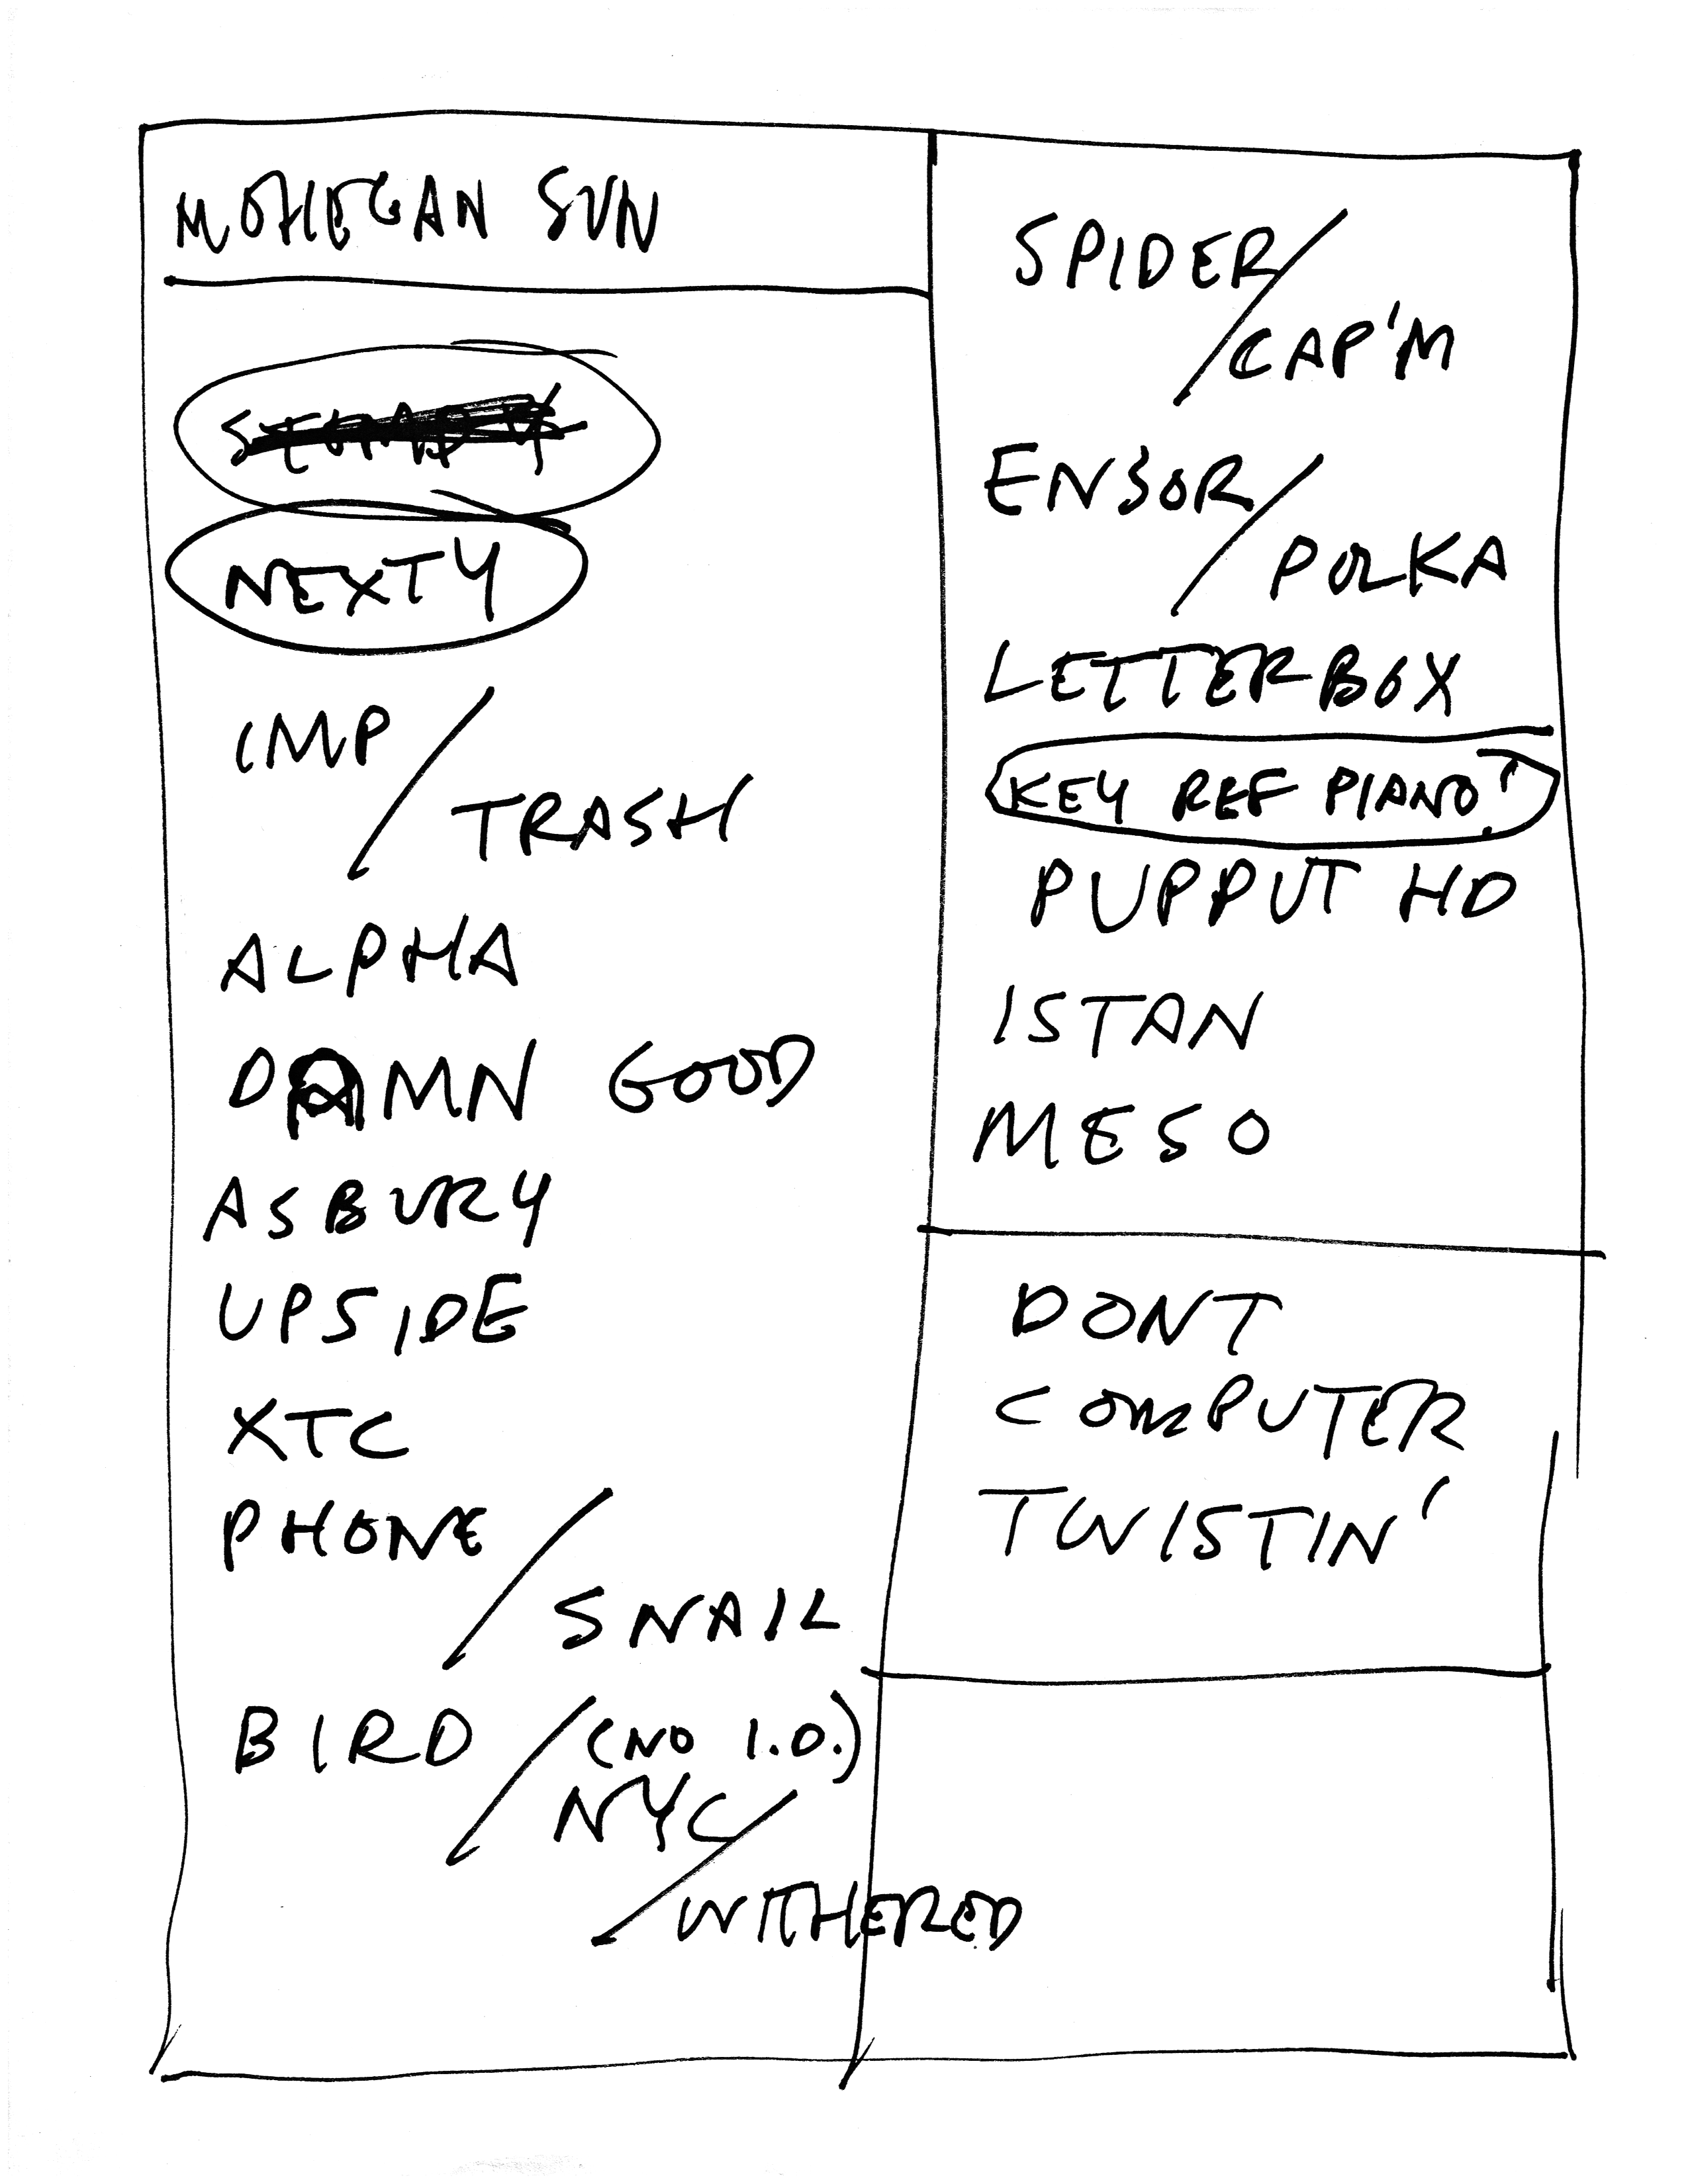 MOHEGAN SUN
NEXTY
IMP/
TRASH
ALPHA
DAMN GOOD
ASBURY
UPSIDE
XTC
PHONE/
SNAIL
BIRD/(NO I.D.)
NYC/
WITHERED
SPIDER/
CAP'M
ENSOR/
POLKA
LETTERBOX
KEY REF PIANO?
PUPPUT HD
ISTAN
MESO
DONT
COMPUTER
TWISTIN'